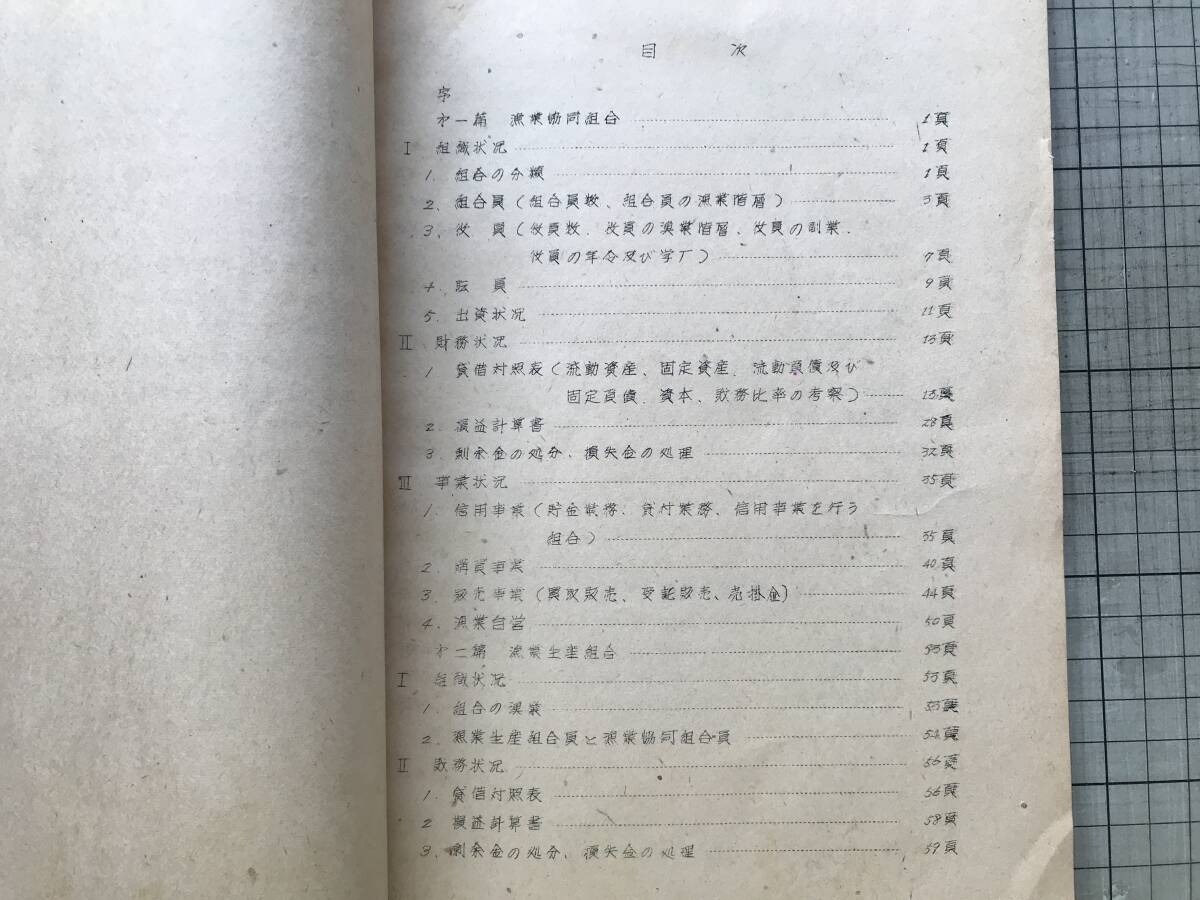 目 次
序
才一篇 漁業協同組合 1頁
I 組織状況 1頁
1. 組合の分類 1頁
2. 組合員(組合員数、組合員の漁業階層) 3頁
3. 役員(役員数、役員の漁業階層、役員の副業、
役員の年令及び学厂) 7頁
4. 職員 9頁
5. 出資状况 11頁
II 財務状况 13頁
1 貸借対照表(流動資産、固定資産、流動負債及び
固定負債、資本、財務比率の考察) 13頁
2. 損益計算書 28頁
3. 剰余金の処分、損失金の処理 32頁
III 事業状况 35頁
1. 信用事業(貯金業務、貸付業務、信用事業を行う
組合) 35頁
2. 購買事業 40頁
3. 販売事業(買取販売、受託販売、売掛金) 44頁
4. 漁業自営 50頁
才二篇 漁業生産組合 53頁
I 組織状况 53頁
1. 組合の漁業 53頁
2. 漁業生産組合員と漁業協同組合員 54頁
II 財務状况 56頁
1. 貸借対照表 56頁
2 損益計算書 58頁
3. 剰余金の処分、損失金の処理 59頁